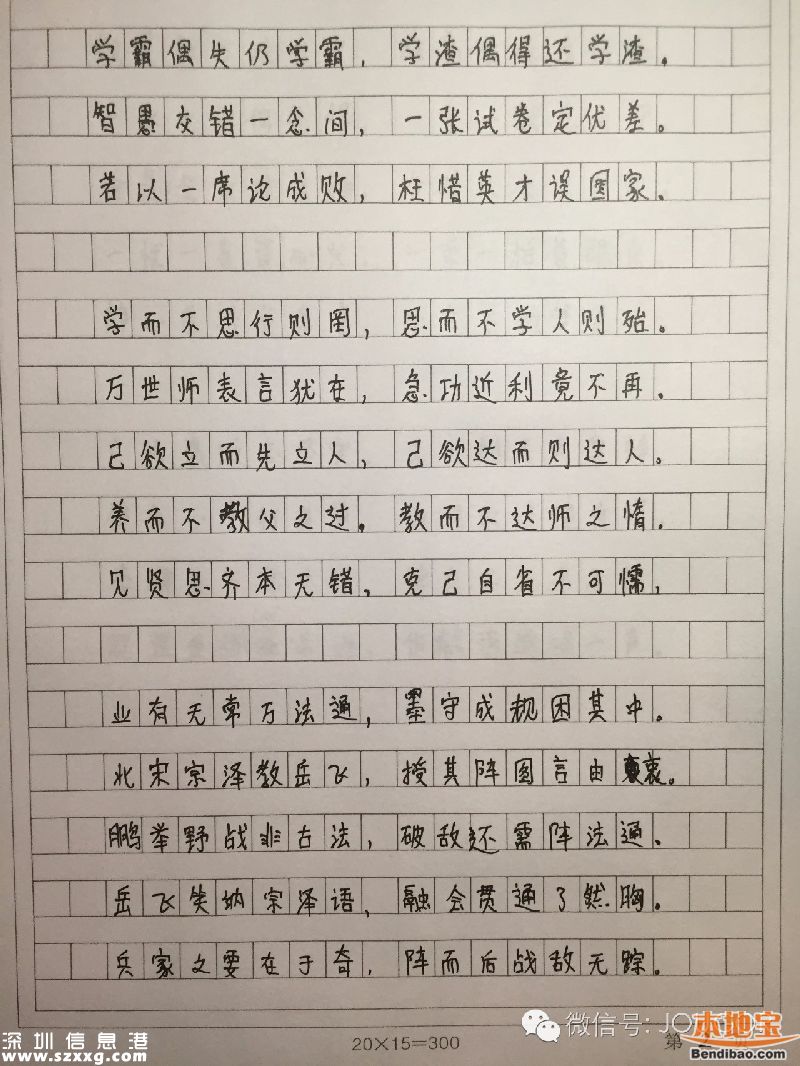 学霸偶失仍学霸，学渣偶得还学渣。
智愚交错一念间，一张试卷定优差。
若以一席论成败，枉惜英才误国家。
学而不思行则罔，思而不学人则殆。
万世师表言犹在，急功近利竟不再。
己欲立而先立人，己欲达而则达人。
养而不教父之过。教而不达师之惰。
见贤思齐本无错，克己自省不可懦，
业有无常万法通，墨守成规困其中。
北宋宗泽教岳飞，授其阵图言由衷。
鹏举野战非古法，破敌还需阵法通、
岳飞笑纳宗泽语，融会贯通了然胸。
兵家之要在于奇，阵而后战敌无踪。
微信号：JO
20×15=300
第 2 页
深圳信息港
www.szxxg.com
本地宝
Bendibao.com